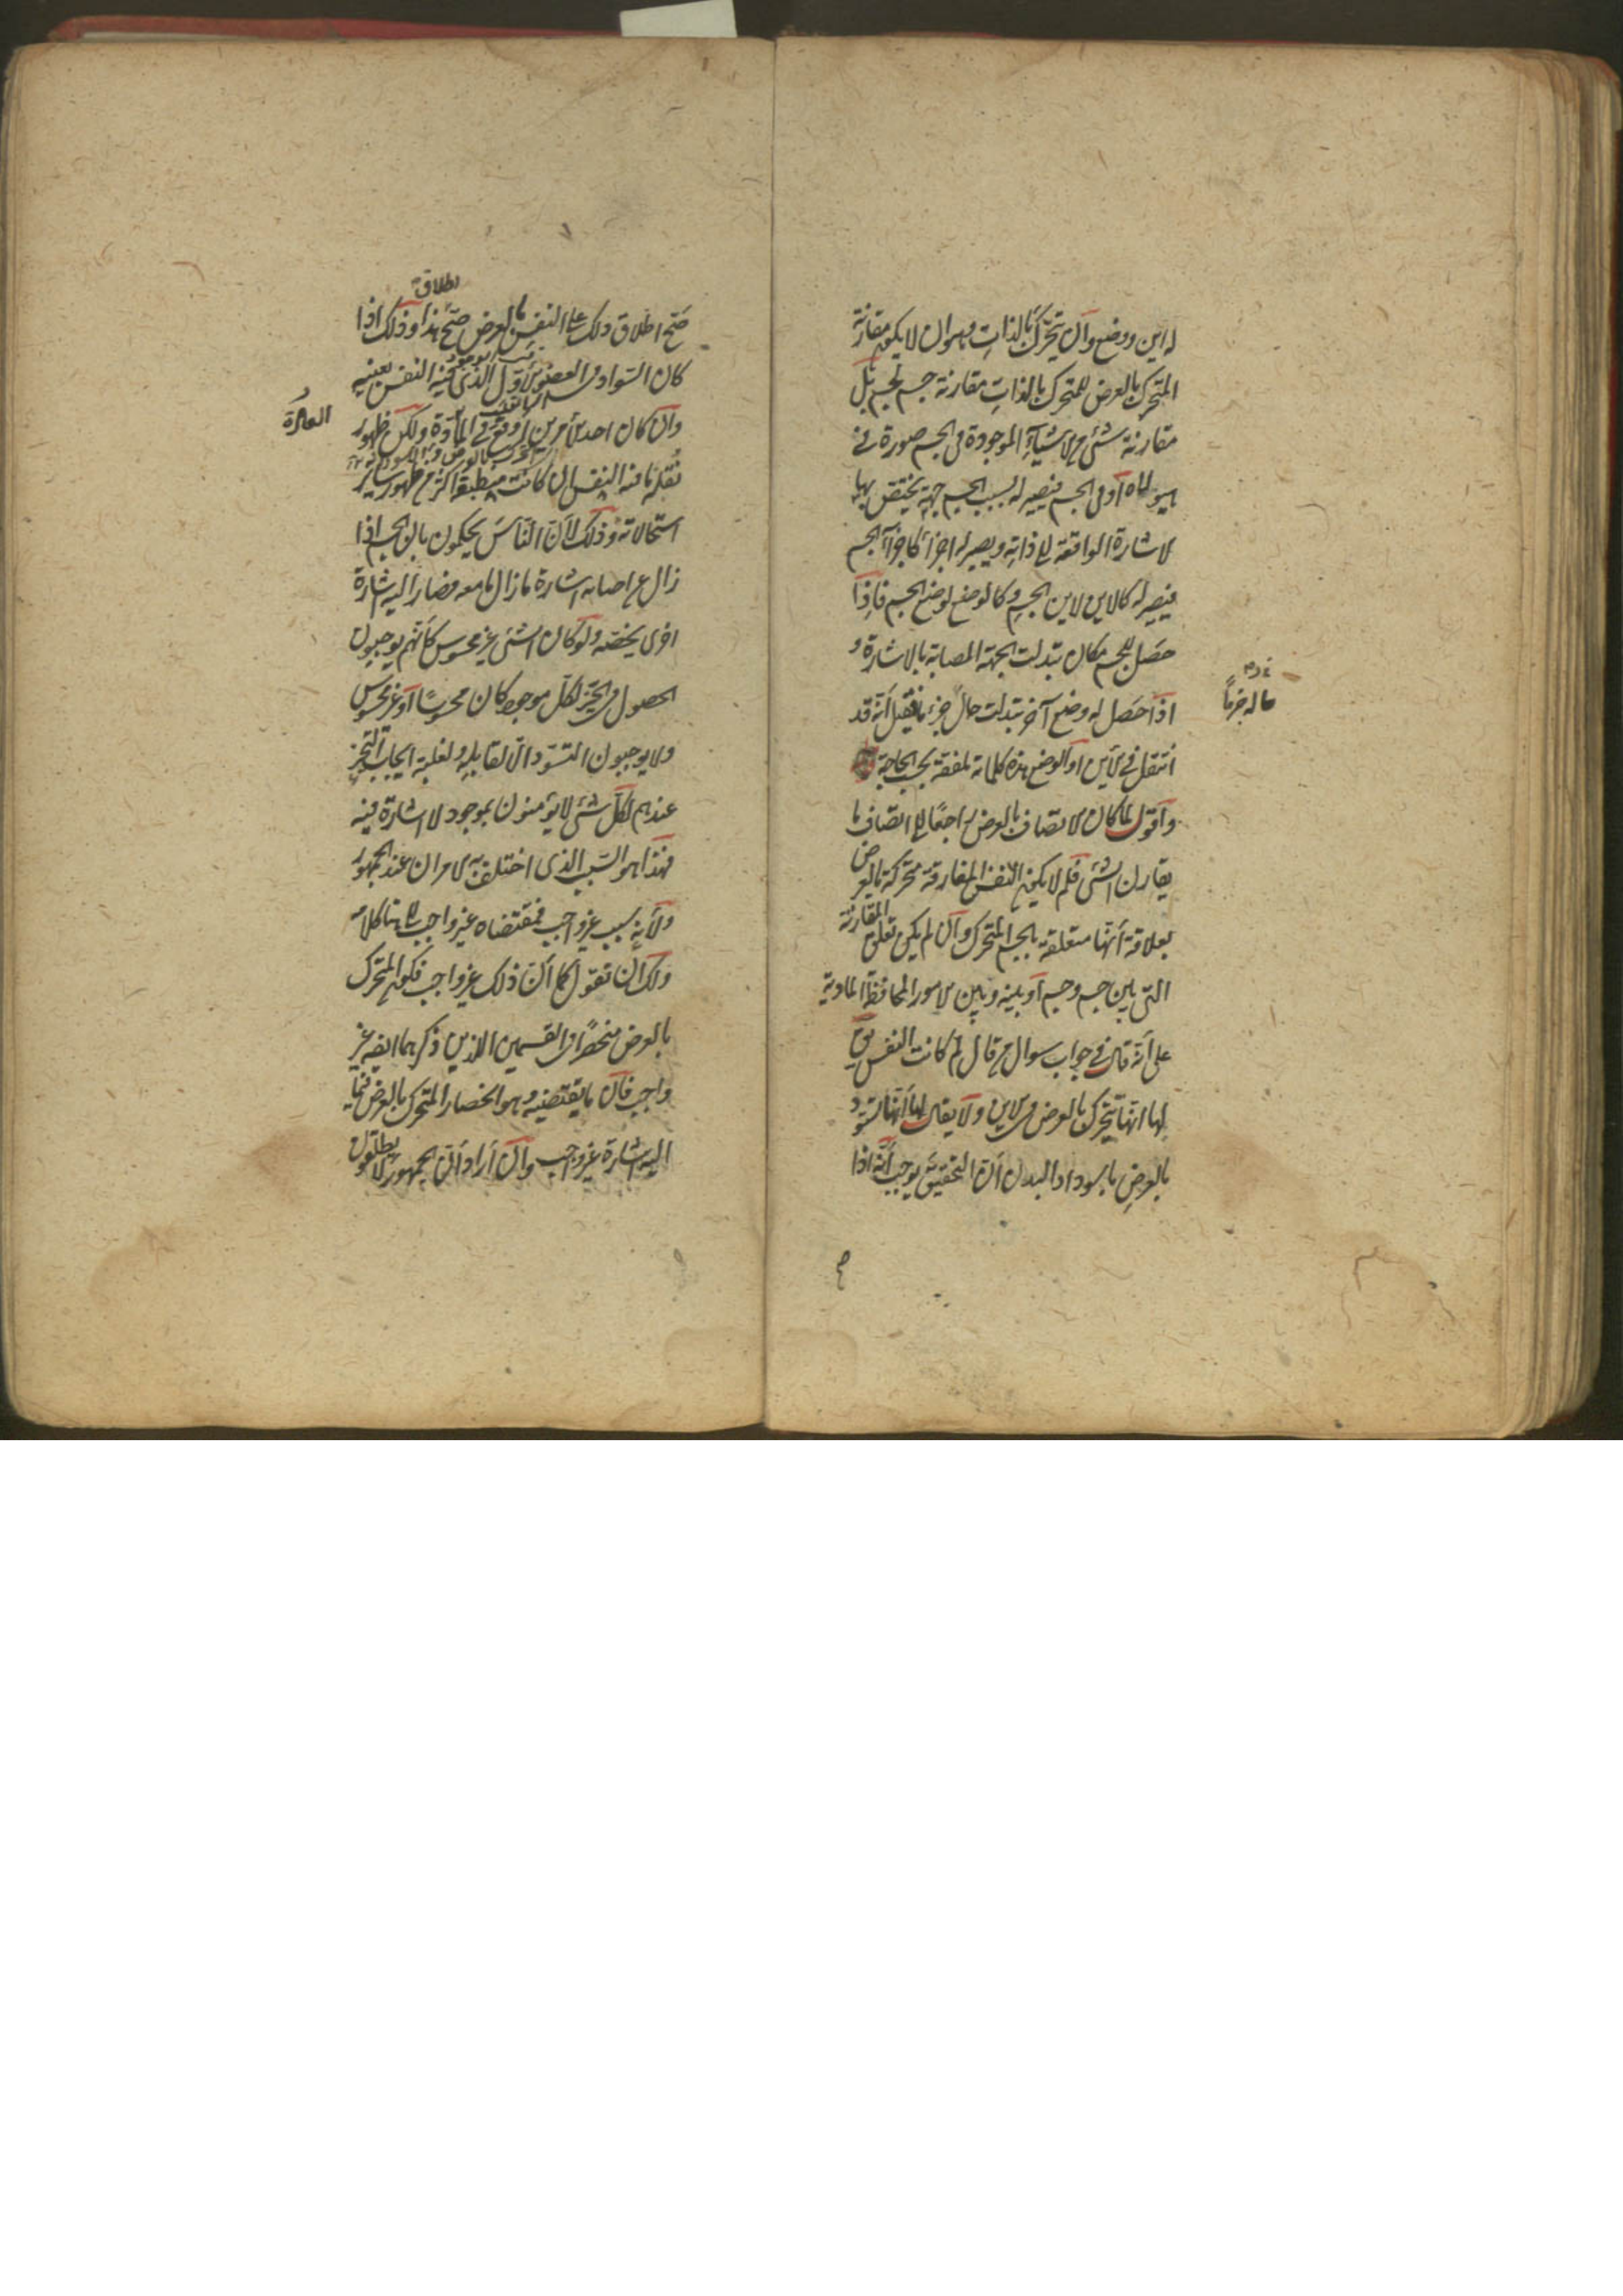 له اين ووضع وان يتحرك بالذات وهو ان لا يكون مقارنة
المتحرك بالعرض للمتحرك بالذات مقارنة جسم لجسم بل
مقارنة شئ من الاشياء الموجودة فى الجسم صورة فى
هيولاه او فى الجسم فيصير له بسبب الجسم جهة يختص بها
الاشارة الواقعة الى ذاته ويصير له اجزاء كاجزاء الجسم
فيصير له كالاين لاين الجسم وكالوضع لوضع الجسم فاذا
حصل للجسم مكان تبدلت الجهة المصابة بالاشارة و
اذا حصل له وضع آخر تبدلت حال جزء ما فقيل انه قد
انتقل فى الاين او الوضع هذه كلماته ملفقة بحسب الحاجة
واقول لما كان الاتصاف بالعرض راجعا الى اتصاف ما
يقارن الشئ فلم لا يكون النفس المفارقة متحركة بالعرض
بعلاقة انها متعلقة بالجسم المتحرك وان لم يكن تعلق المقارنة
التى بين جسم وجسم او بينه وبين الامور المادية
على انه قال فى جواب سوال من قال لم كانت النفس يق
لها انها تتحرك بالعرض فى الاين ولا يقال لها انها تسود
بالعرض باسوداد البدن ان التحقيق يوجب انه اذا
ماله جزء ما
صح اطلاق ذلك على النفس بالعرض صح هذا وذلك اذا
اطلاق
كان السواد فى العضو الاول الذى فيه النفس بعينه
وان كان احد الامرين اوقع فى العادة ولكن ظهور
نقلة ما فيه النفس ان كانت منطبعة اكثر من ظهور ساير
استحالاته وذلك لان الناس يحكمون بان الجسم اذا
زال عن اصابة اشارة ما زال ما معه فصار اليه اشارة
اخرى يخصه ولو كان الشئ غير محسوس كانهم يوجبون
الحصول فى الحيز لكل موجود كان محسوسا او غير محسوس
ولا يوجبون التسود الا لقابله ولغلبة ايجاب التحيز
عندهم لكل شئ لا يؤمنون بموجود لا اشارة فيه
فهذا هو السبب الذى اختلف به الامران عند الجمهور
ولانه سبب غير واجب فمقتضاه غير واجب الى هنا كلامه
ولك ان تقول كما ان ذلك غير واجب فكون المتحرك
بالعرض منحصرا فى القسمين اللذين ذكرهما ايضا غير
واجب فان ما يقتضيه وهو انحصار المتحرك بالعرض فيما
اليه اشارة غير واجب وان اراد ان الجمهور لا يطلقون